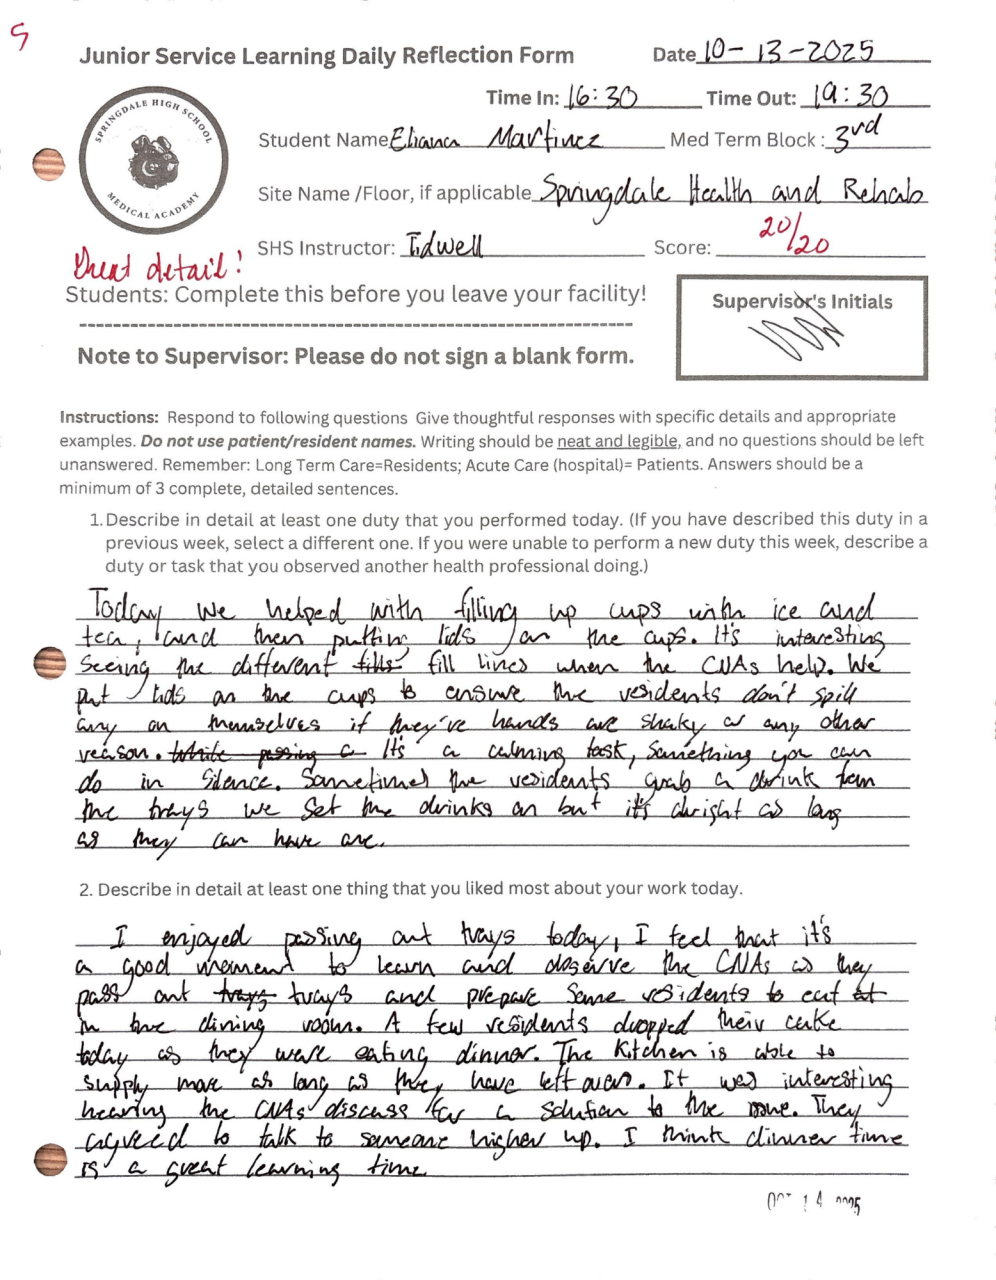 5
Junior Service Learning Daily Reflection Form
Date 10-13-2025
Time In: 16:30 Time Out: 19:30
SPRINGDALE HIGH SCHOOL
MEDICAL ACADEMY
Student Name Eliana Martinez Med Term Block: 3rd
Site Name /Floor, if applicable Springdale Health and Rehab
SHS Instructor: Tidwell Score: 20/20
Great detail!
Students: Complete this before you leave your facility!
Supervisor's Initials
Note to Supervisor: Please do not sign a blank form.
Instructions: Respond to following questions Give thoughtful responses with specific details and appropriate
examples. Do not use patient/resident names. Writing should be neat and legible, and no questions should be left
unanswered. Remember: Long Term Care=Residents; Acute Care (hospital)= Patients. Answers should be a
minimum of 3 complete, detailed sentences.
1. Describe in detail at least one duty that you performed today. (If you have described this duty in a
previous week, select a different one. If you were unable to perform a new duty this week, describe a
duty or task that you observed another health professional doing.)
Today we helped with filling up cups with ice and
tea, and then puttin lids on the cups. It's interesting
seeing the different fills fill lines when the CNAs help. We
put lids on the cups to ensure the residents don't spill
any on themselves if they've hands are shaky or any other
reason. While passing a It's a calming task, something you can
do in silence. Sometimes the residents grab a drink from
the trays we set the drinks on but it's alright as long
as they can have one.
2. Describe in detail at least one thing that you liked most about your work today.
I enjoyed passing out trays today, I feel that it's
a good moment to learn and observe the CNAs as they
pass out trays trays and prepare some residents to eat at
in the dining room. A few residents dropped their cake
today as they were eating dinner. The kitchen is able to
supply more as long as they have left overs. It was interesting
hearing the CNAs discuss for a solution to the They
agreed to talk to someone higher up. I think dinner time
is a great learning time
OCT 14 2025